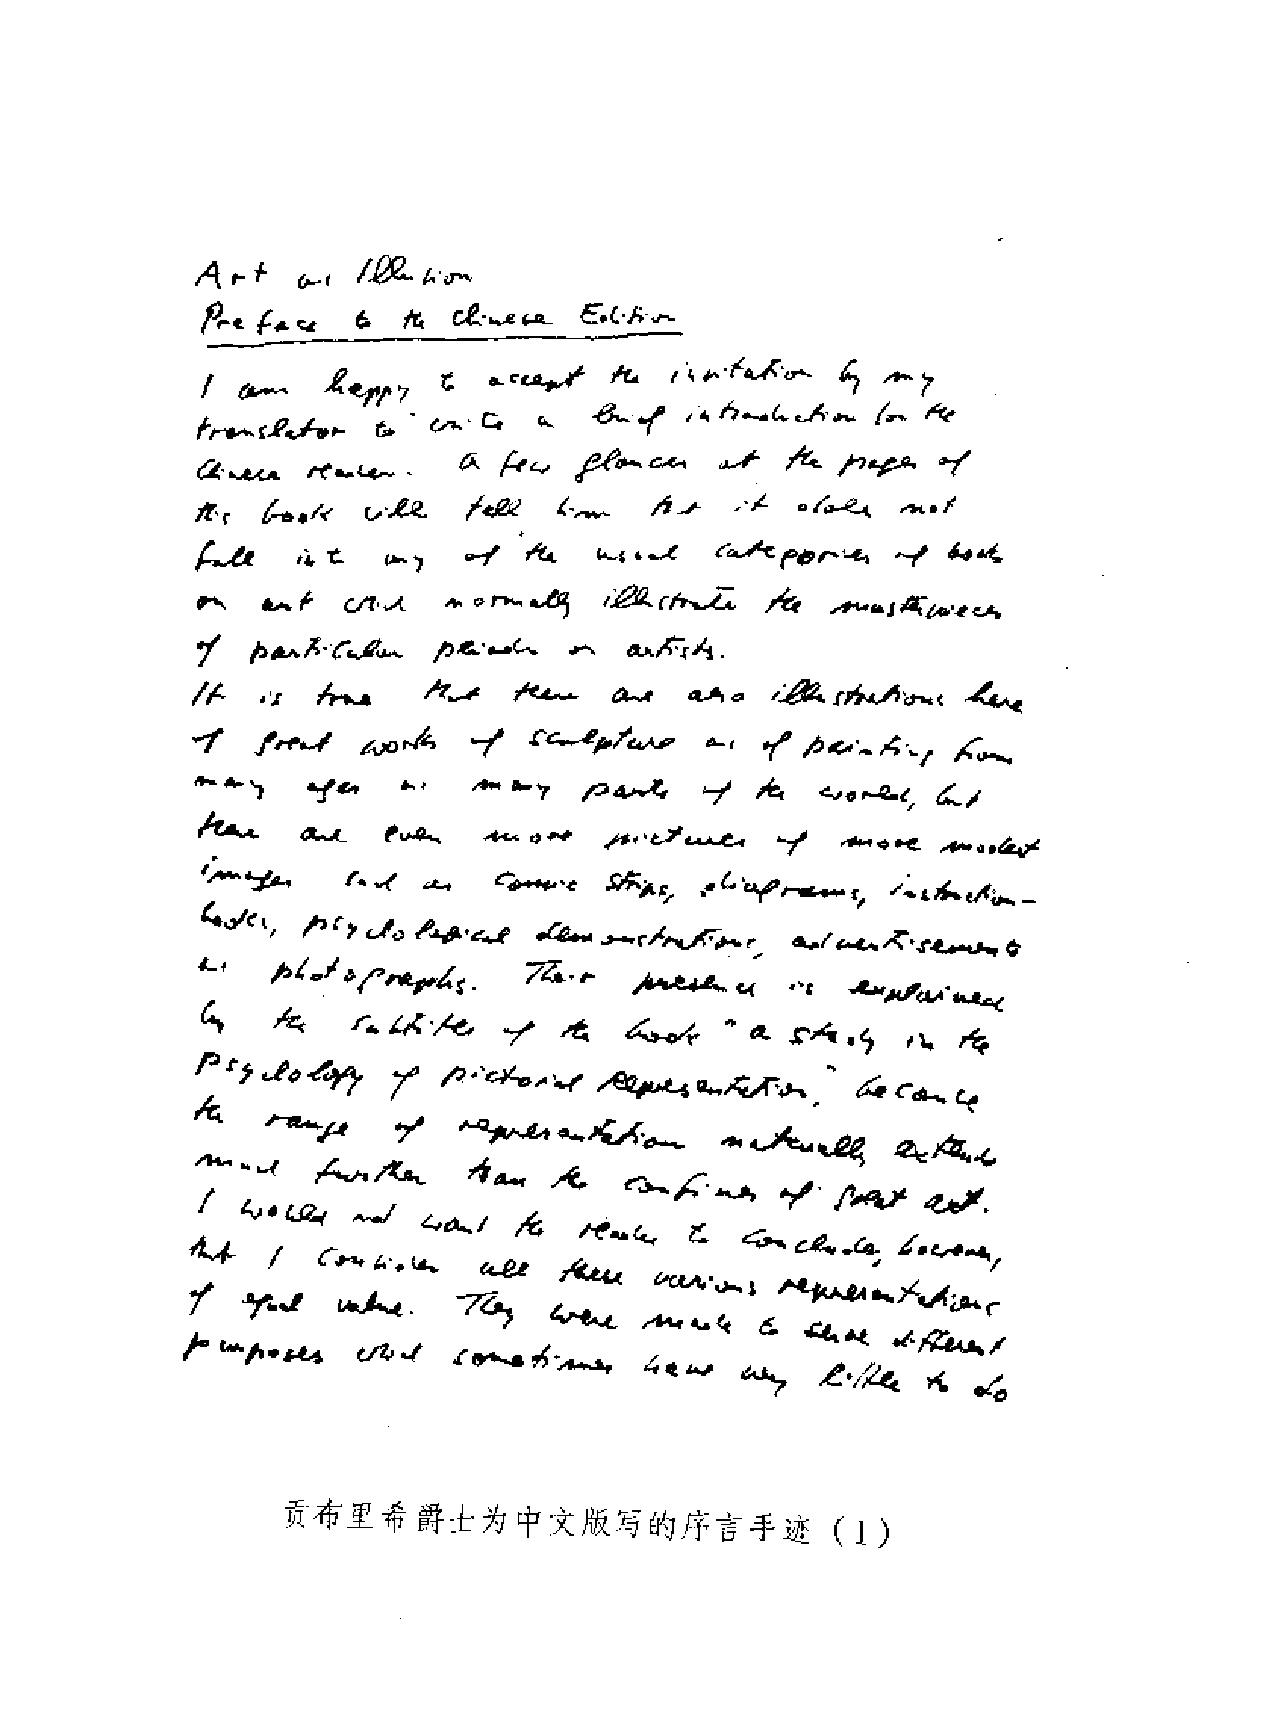 Art as Illusion
Preface to the Chinese Edition
I am happy to accept the invitation by my
translator to write a brief introduction for the
Chinese reader. A few glances at the pages of
this book will tell him that it does not
fall into any of the usual categories of books
on art which normally illustrate the masterpieces
of particular periods or artists.
It is true that there are also illustrations here
of great works of sculpture as of painting from
many ages and many parts of the world, but
there are even more pictures of more modest
images such as comic strips, diagrams, instruction-
books, psychological demonstrations, advertisements
and photographs. Their presence is explained
by the subtitle of the book "a study in the
psychology of pictorial representation," because
the range of representation naturally extends
much further than the confines of great art.
I would not want the reader to conclude, however,
that I consider all these various representations
of equal value. They were made to serve different
purposes which sometimes have very little to do
贡布里希爵士为中文版写的序言手迹（1）